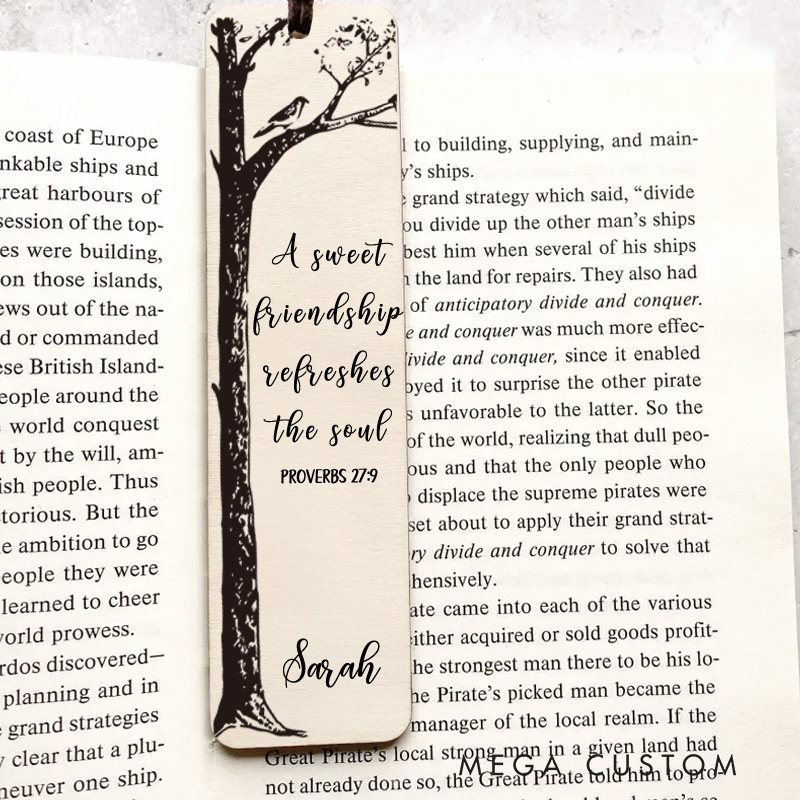 coast of Europe
nkable ships and
reat harbours of
session of the top-
es were building,
on those islands,
ews out of the na-
d or commanded
ese British Island-
eople around the
world conquest
t by the will, am-
ish people. Thus
torious. But the
e ambition to go
eople they were
learned to cheer
world prowess.
rdos discovered—
planning and in
e grand strategies
y clear that a plu-
neuver one ship.
A sweet
friendship
refreshes
the soul
PROVERBS 27:9
Sarah
l to building, supplying, and main-
y's ships.
grand strategy which said, “divide
ou divide up the other man's ships
best him when several of his ships
n the land for repairs. They also had
of anticipatory divide and conquer.
e and conquer was much more effec-
ivide and conquer, since it enabled
oyed it to surprise the other pirate
s unfavorable to the latter. So the
of the world, realizing that dull peo-
ous and that the only people who
displace the supreme pirates were
set about to apply their grand strat-
ry divide and conquer to solve that
hensively.
ate came into each of the various
either acquired or sold goods profit-
he strongest man there to be his lo-
he Pirate's picked man became the
manager of the local realm. If the
Great Pirate's local strong-man in a given land had
not already done so, the Great Pirate told him to pro-
MEGA CUSTOM